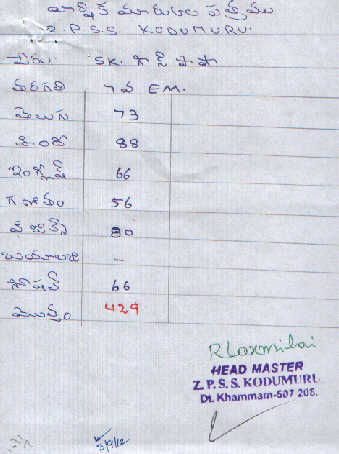 వార్షిక మార్కుల పత్రము
Z.P.S.S KODUMURU.
పేరు: SK. గౌస్ పాషా
తరగతి 7వ EM.
తెలుగు 73
హిందీ 88
ఇంగ్లీష్ 66
గణితం 56
ఫిజిక్స్ 80
బయాలజి -
సోషల్ 66
మొత్తం 429
R Laxmibai
HEAD MASTER
Z.P.S.S. KODUMURU
Dt. Khammam-507 208.